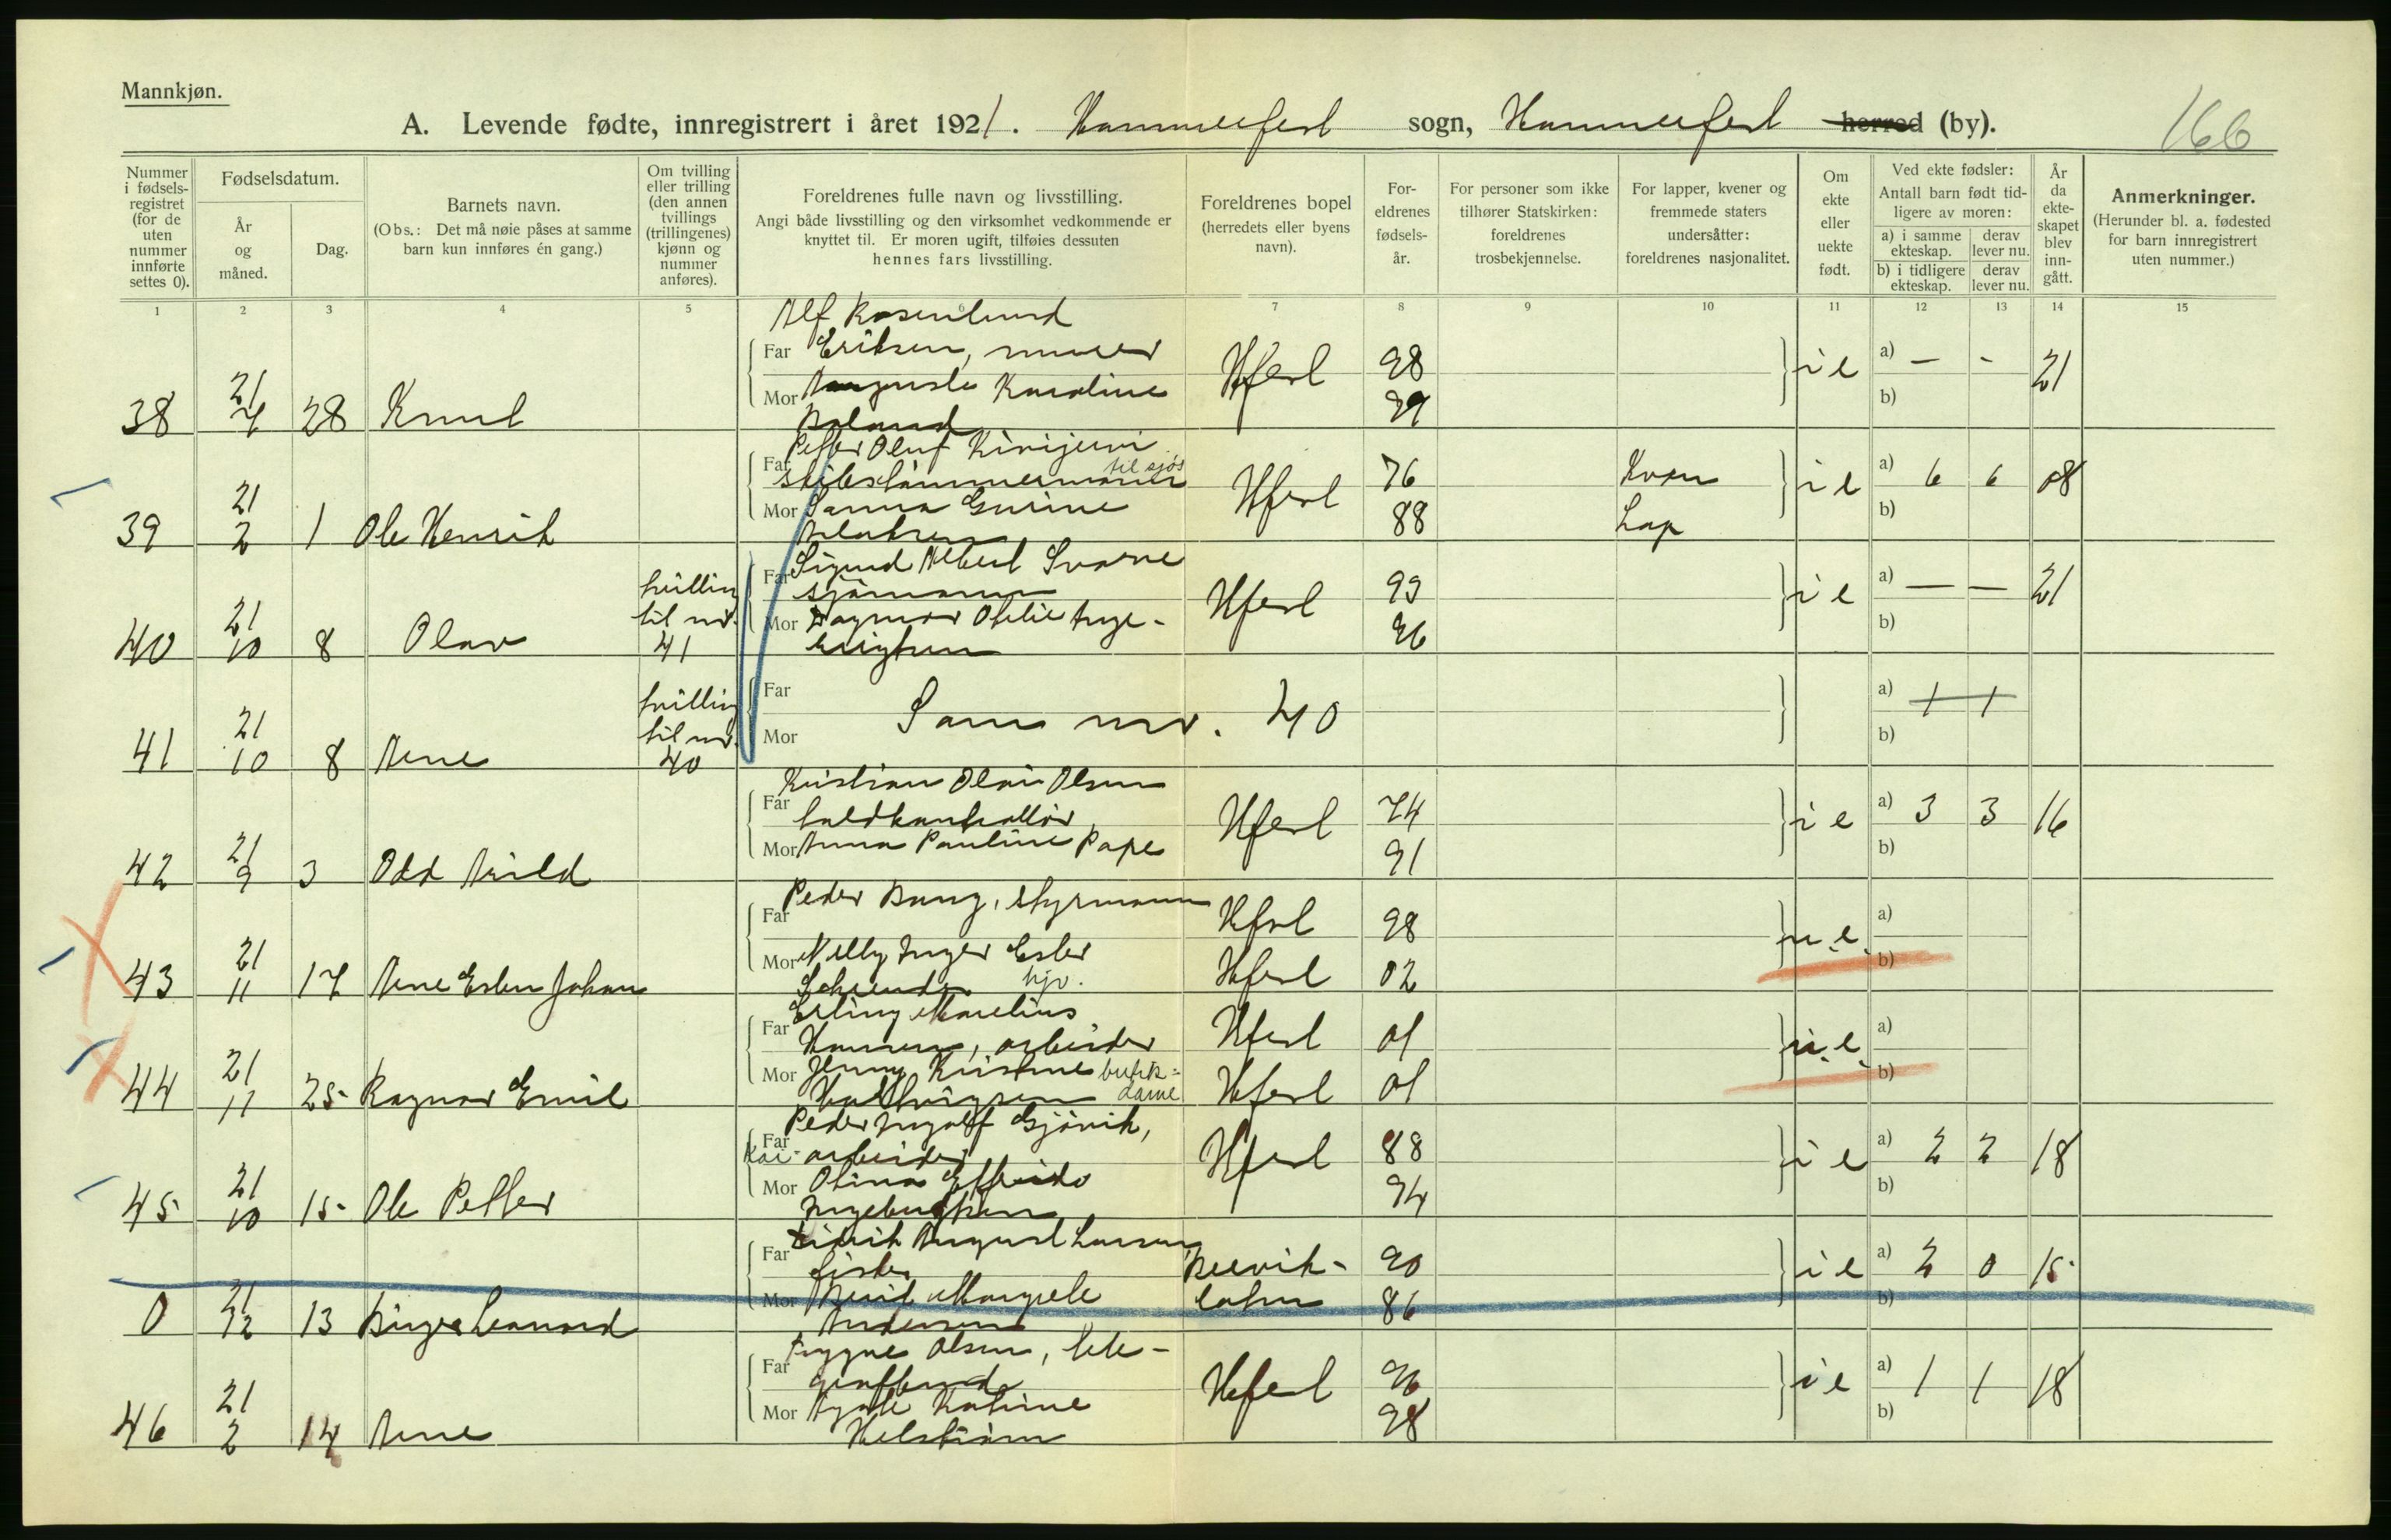 Mannkjøn.
A. Levende fødte, innregistrert i året 1921. Hammerfest sogn, Hammerfest herred (by).
166
Nummer i fødsels-registret (for de uten nummer innførte settes 0).
Fødselsdatum.
År og måned.
Dag.
Barnets navn.
(Obs.: Det må nøie påses at samme barn kun innføres én gang.)
Om tvilling eller trilling (den annen tvillings (trillingenes) kjønn og nummer anføres).
Foreldrenes fulle navn og livsstilling.
Angi både livsstilling og den virksomhet vedkommende er knyttet til. Er moren ugift, tilføies dessuten hennes fars livsstilling.
Foreldrenes bopel (herredets eller byens navn).
For-eldrenes fødsels-år.
For personer som ikke tilhører Statskirken: foreldrenes trosbekjennelse.
For lapper, kvener og fremmede staters undersåtter: foreldrenes nasjonalitet.
Om ekte eller uekte født.
Ved ekte fødsler: Antall barn født tid-ligere av moren:
a) i samme ekteskap.
derav lever nu.
b) i tidligere ekteskap.
derav lever nu.
År da ekte-skapet blev inn-gått.
Anmerkninger.
(Herunder bl. a. fødested for barn innregistrert uten nummer.)
1 2 3 4 5 6 7 8 9 10 11 12 13 14 15
Alf Rosenlund
Far Eriksen, murer Hfest 98 i e a) — - 21
Mor Auguste Karoline 99 b)
38 21/4 28 Knut
Peder Oluf Kivijervi
Far skibstømmermann til sjøs Hfest 76 Kven i e a) 6 6 08
Mor Sanna Gurine 88 Lap b)
39 21/2 1 Ole Henrik
Far Sigurd Albert Svarve
sjømann Hfest 99 i e a) — — 21
Mor Dagmar Otelie Inge-brigtsen 96 b)
40 21/10 8 Olav tvilling til nr. 41
Far Mor Sam nr. 40 a) 1 1 b)
41 21/10 8 Arne tvilling til nr. 40
Kristian Olai Olsen
Far toldkontrollør Hfest 74 i e a) 3 3 16
Mor Anna Pauline Pape 91 b)
42 21/9 3 Odd Arild
Far Peder Bang, styrmann Hfest 98 u.e. a)
Mor Nelly Inger Ester hjv. Hfest 02 b)
43 21/11 17 Arne Esben Johan
Far Erling Marelius
Hansen, arbeider Hfest 01 u.e. a)
Mor Jenny Kristine butik-dame Hfest 01 b)
44 21/11 25 Ragnar Emil
Far Peder Ingolf Gjövik,
Kai-arbeider Hfest 88 i e a) 2 2 18
Mor Olina Elfrida 94 b)
Ingebrigtsen
45 21/10 15 Ole Petter
Far Eidrik August Larsen
fisker 90 i e a) 2 0 15
Mor Berit Margrete 86 b)
Andersen
0 21/12 13 Birger Leonard
Trygve Olsen, tele-
Far grafbud Hfest 96 i e a) 1 1 18
Mor Agate Katrine 98 b)
Helstrøm
46 21/2 14 Arne